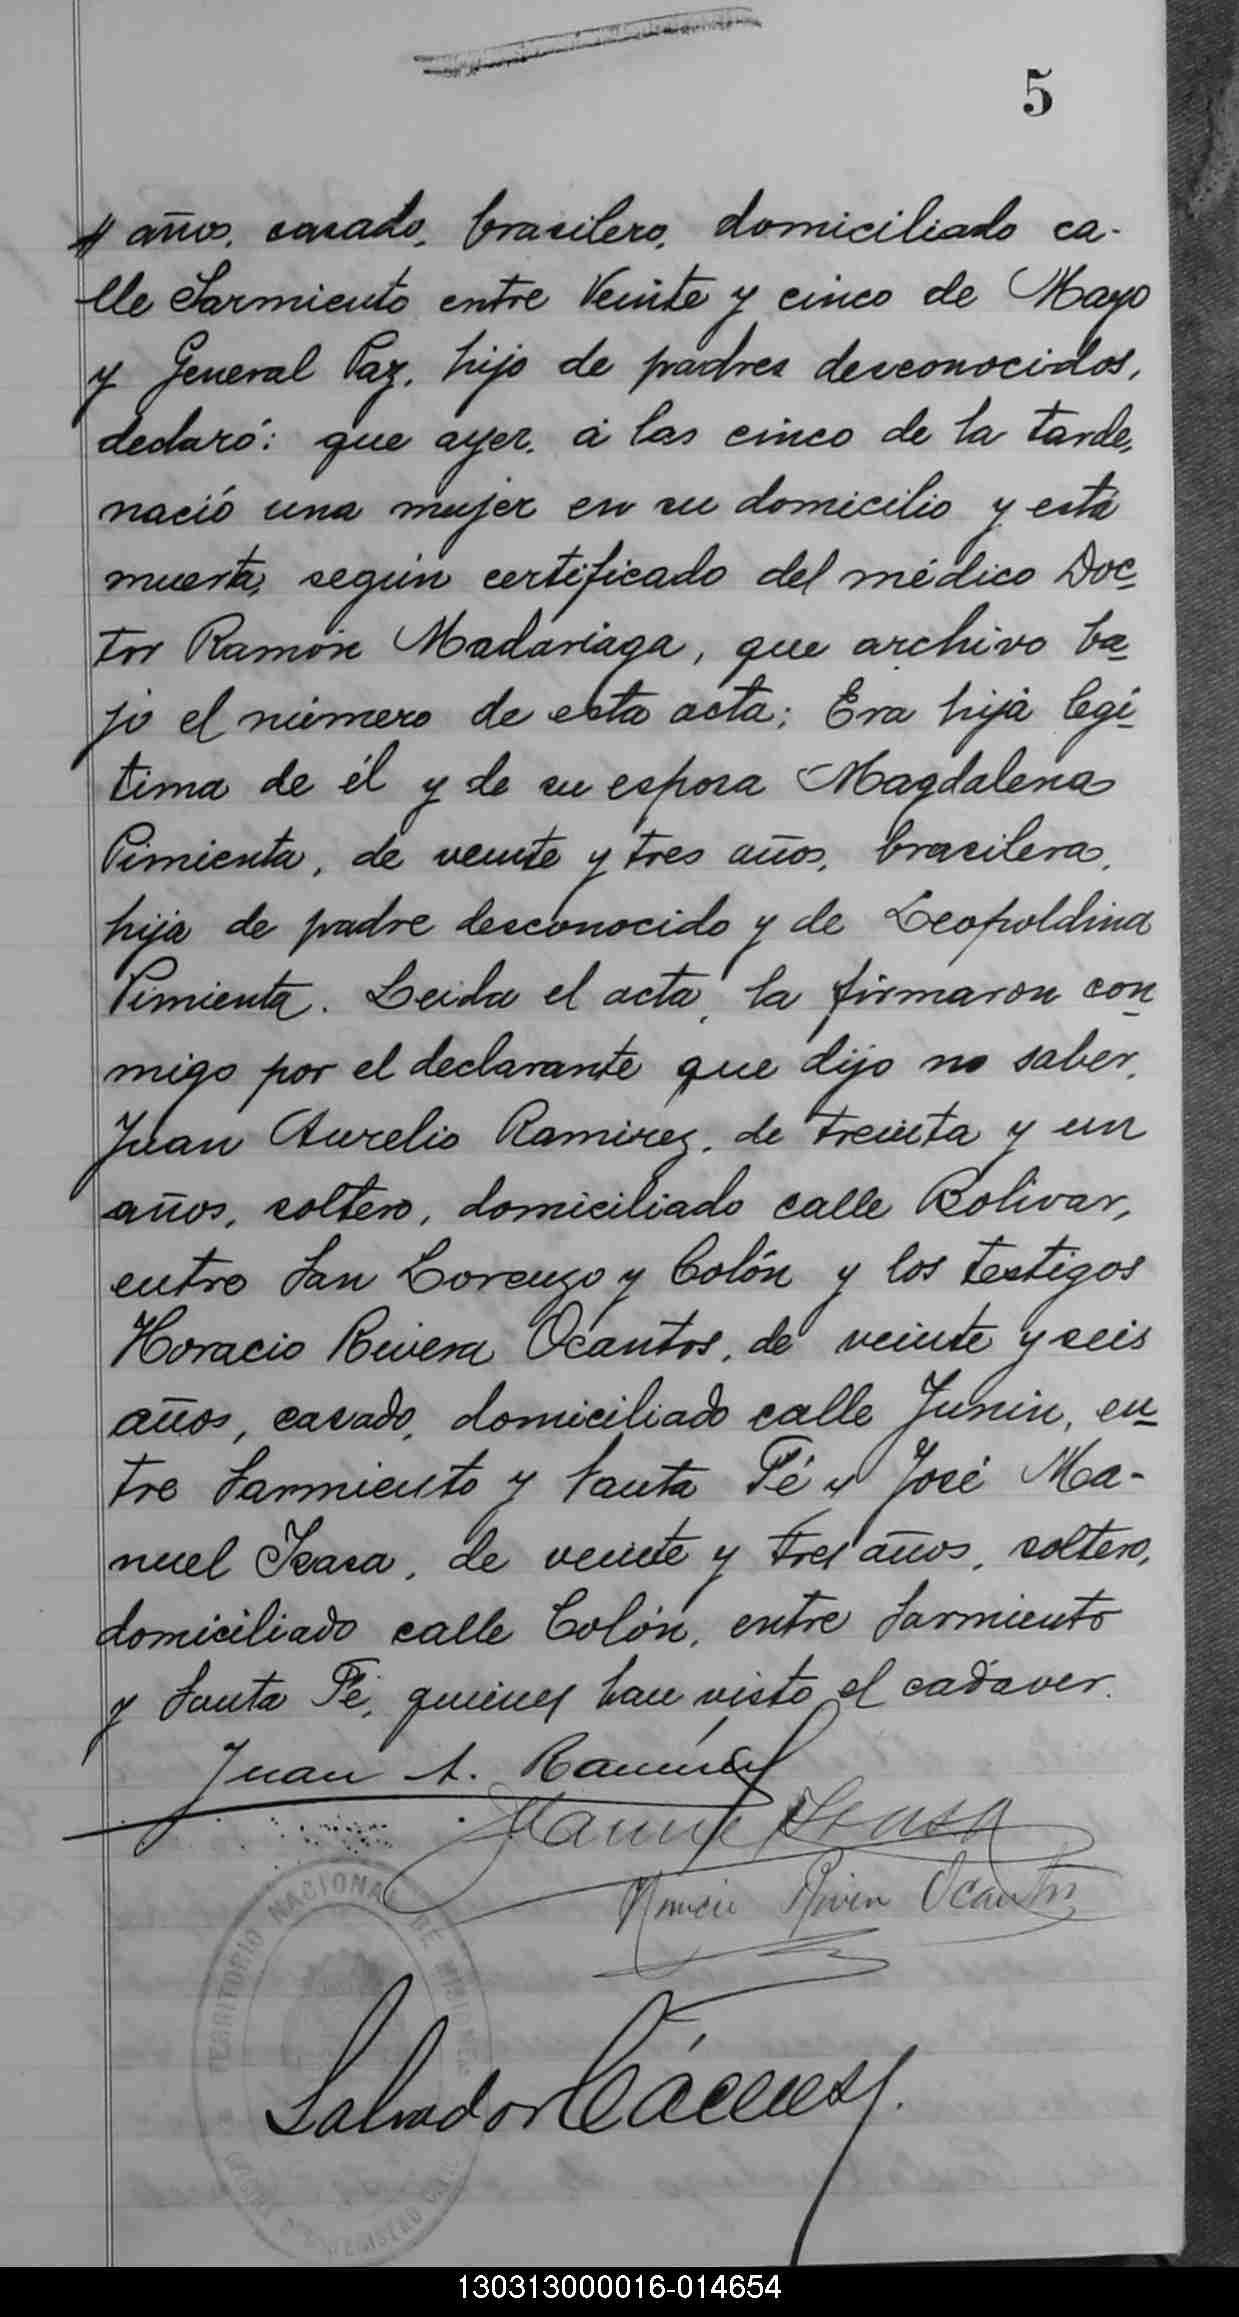 5
años, casado, brasilero, domiciliado ca-
lle Sarmiento entre Veinte y cinco de Mayo
y General Paz, hijo de padres desconocidos,
declaró: que ayer, á las cinco de la tarde,
nació una mujer en su domicilio y está
muerta, según certificado del médico Doc-
tor Ramón Madariaga, que archivo ba-
jo el número de esta acta; Era hija legí-
tima de él y de su esposa Magdalena
Pimienta, de veinte y tres años, brasilera,
hija de padre desconocido y de Leopoldina
Pimienta. Leida el acta, la firmaron con-
migo por el declarante que dijo no saber,
Juan Aurelio Ramirez, de treinta y un
años, soltero, domiciliado calle Bolivar,
entre San Lorenzo y Colón y los testigos
Horacio Rivera Ocantos, de veinte y seis
años, casado, domiciliado calle Junin, en-
tre Sarmiento y Santa Fé y José Ma-
nuel Isasa, de veinte y tres años, soltero,
domiciliado calle Colón, entre Sarmiento
y Santa Fé, quienes han visto el cadáver.
Juan A. Ramírez
Manuel Isasa
Horacio Rivera Ocantos
TERRITORIO NACIONAL DE MISIONES
Salvador Cáceres.
130313000016-014654